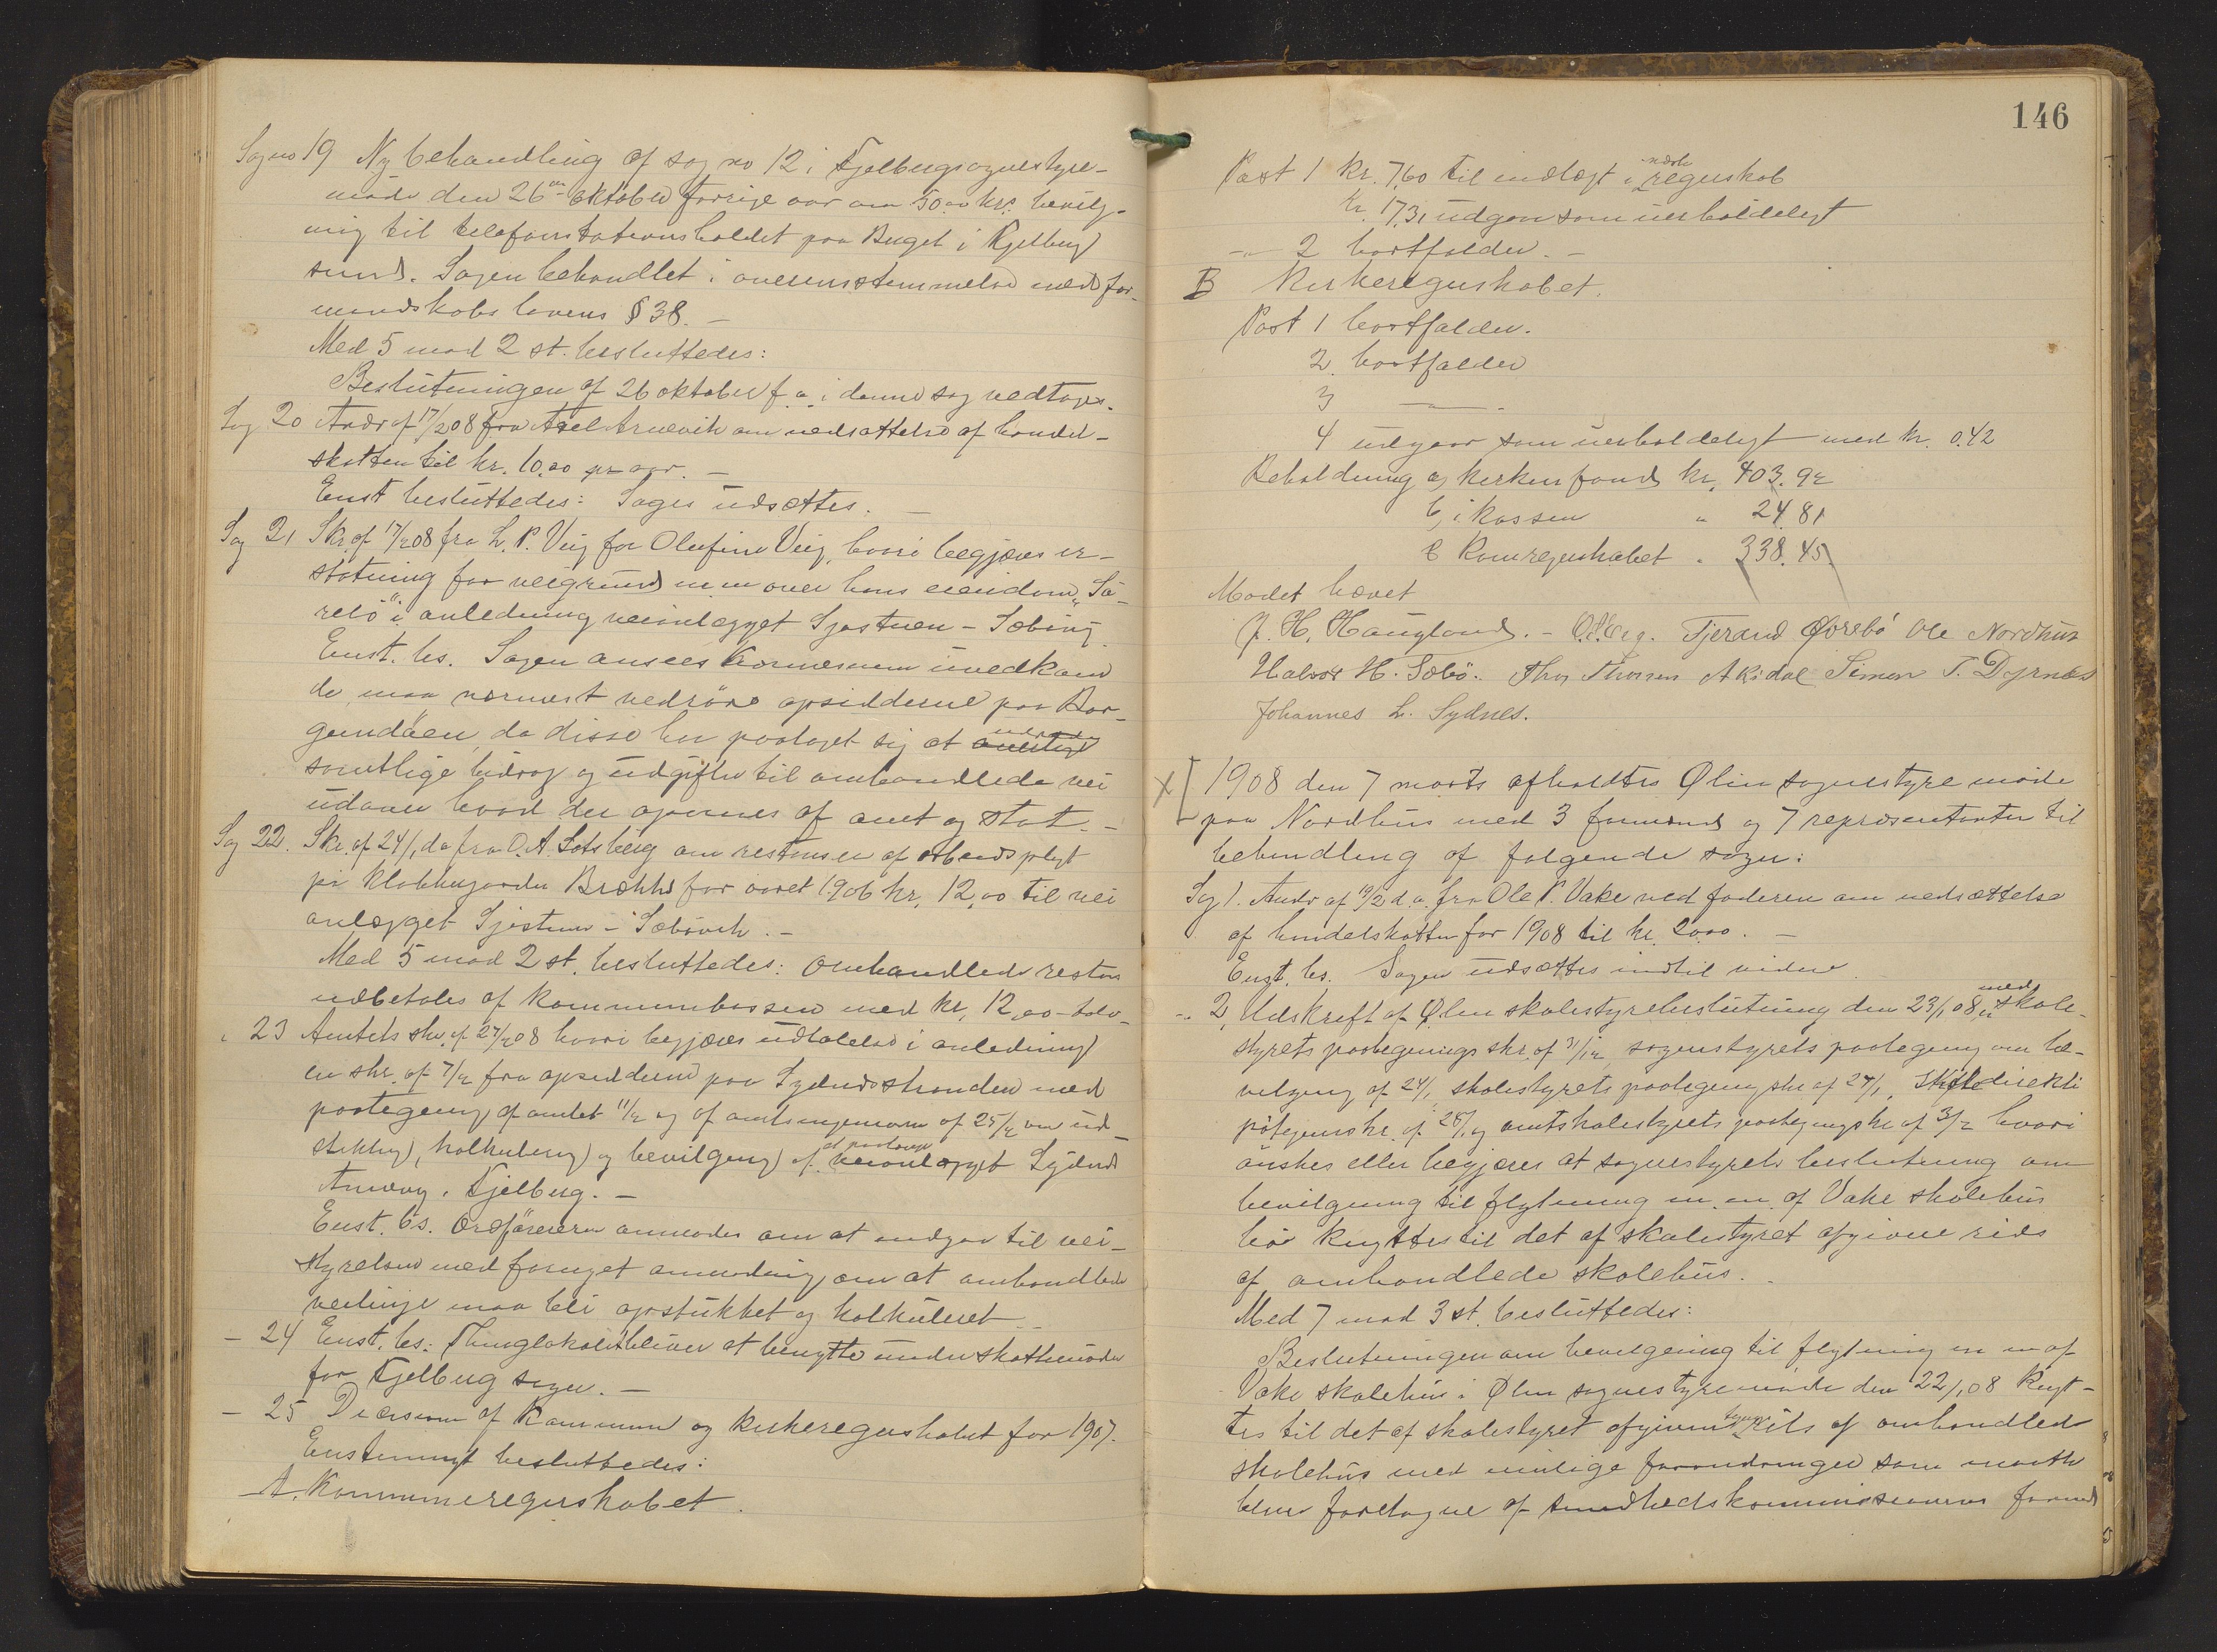 Sag no 19 Ny behandling af sag no 12 i Fjelbergsognestyre-
møde den 26de oktober forrige aar om 50.00 kr. bevilg-
ning til telefonstationsholdet paa Buget i Kjelberg
sund. Sagen behandlet i overensstemmelse med for-
mandskabs lovens § 38. —
Med 5 mod 2 st. besluttedes:
Beslutningen af 26 oktober f. a. i denne sag vedtages.
Sag 20 Andr af 17/2 08 fra Axel Arnevik om nedsættelse af handel-
skatten til kr. 10.00 pr aar. —
Enst besluttedes: Sagen udsættes. —
Sag 21 Skr. af 17/2 08 fra L. P. Veig for Olufine Veig, hvori begjæres er-
statning for veigrund m.m over hans eiendom „Sö-
relö" i anledning veianlægget Sjøstuen – Sæbövig
Enst. bs. Sagen ansees kommunen uvedkom
de, maa nærmest vedröre opsidderne paa Bor-
gundöen, da disse har paataget sig at udrede
samtlige bidrag og udgifter til omhandlede vei
udover hvad der opnaaes af amt og stat. —
Sag 22. Skr. af 24/1 da fra O. A. Lofsberg om restancen af arbeidspligt
på Klokkergarden Brække for aaret 1906 kr. 12,00 til vei
anlægget Sjøstuen – Sæbövik. —
Med 5 mod 2 st. besluttedes: Omhandlede restan
udbetales af kommunekassen med kr. 12,00 – tolv –
„ 23 Amtets skr. af 27/2 08 hvori begjæres udtalelse i anledning
en skr. af 7/2 fra opsidderne paa Sydnesstranden med
paategning af amtet 11/2 og af amtsingeniøren af 25/2 om ud-
stikking, kalkulering og bevilgning af et paatænkt veianlægget Sydnes
Arnevig i Fjelberg. —
Enst. bs. Ordföreren anmodes om at indgaa til vei-
styrelsen med fornyet anmodning om at omhandlede
veilinje maa bli opstukket og kalkuleret. —
— 24 Enst. bs: Thinglokalet bliver at benytte under skattemøder
for Fjelberg sogn. —
— 25 Decision af Kommune og kirkeregnskabet for 1907.
Enstemmigt besluttedes:
A. Kommuneregnskabet.
146
Post 1 kr. 7,60 til indtægt i næste regnskab
kr. 17,31 udgaar som uerholdeligt
–„– 2 bortfalder. —
B Kirkeregnskabet.
Post 1 bortfalder.
2. bortfalder
3 —
4 udgaar som uerholdeligt med kr. 0.42
Beholdning a, kirkens fond kr. 403.92
b, i kassen „ 24.81
c Komregnskabet „ 338.45
Mødet hævet
J. H. Haugland. – O. Veg. Tjerand Øvrebö Ole Nordhus
Halvor H. Sæbö. Thor Thorsen A Kidal Simon T. Dyrnes
Johannes L. Sydnes.
X 1908 den 7 marts afholdtes Ølen sognestyre møde
paa Nordhus med 3 formænd og 7 repræsentanter til
behandling af følgende sager:
Sag 1. Andr af 19/2 d. a. fra Ole P. Vake ved faderen om nedsættelse
af handelskatten for 1908 til kr. 20.00. —
Enst. bs. Sagen udsættes indtil videre
–„ 2, Udskrift af Ølen skolestyrebeslutning den 23/1 08, med skole-
styrets paategnings skr. af 31/12 sognestyrets paategning om be-
vilgning af 24/1 skolestyrets paategning skr af 24/1, Skoledirektö
påtegnsskr. af 28/1 og amtskolestyrets paategnings skr af 3/2 hvori
önskes eller begjæres at sognestyrets beslutning om
bevilgning til flytning m. m. af Vake skolehus
bör knyttes til det af skolestyret afgivne rids
af omhandlede skolehus. —
Med 7 mod 3 st. besluttedes:
Beslutningen om bevilgning til flytning m m af
Vake skolehus i Ølen sognestyremöde den 22/1 08 knyt-
tes til det af skolestyret afgivne rids af omhandlede
skolehus med mulige forandringer som maatte
blive foretagne af sundhedskommissionen